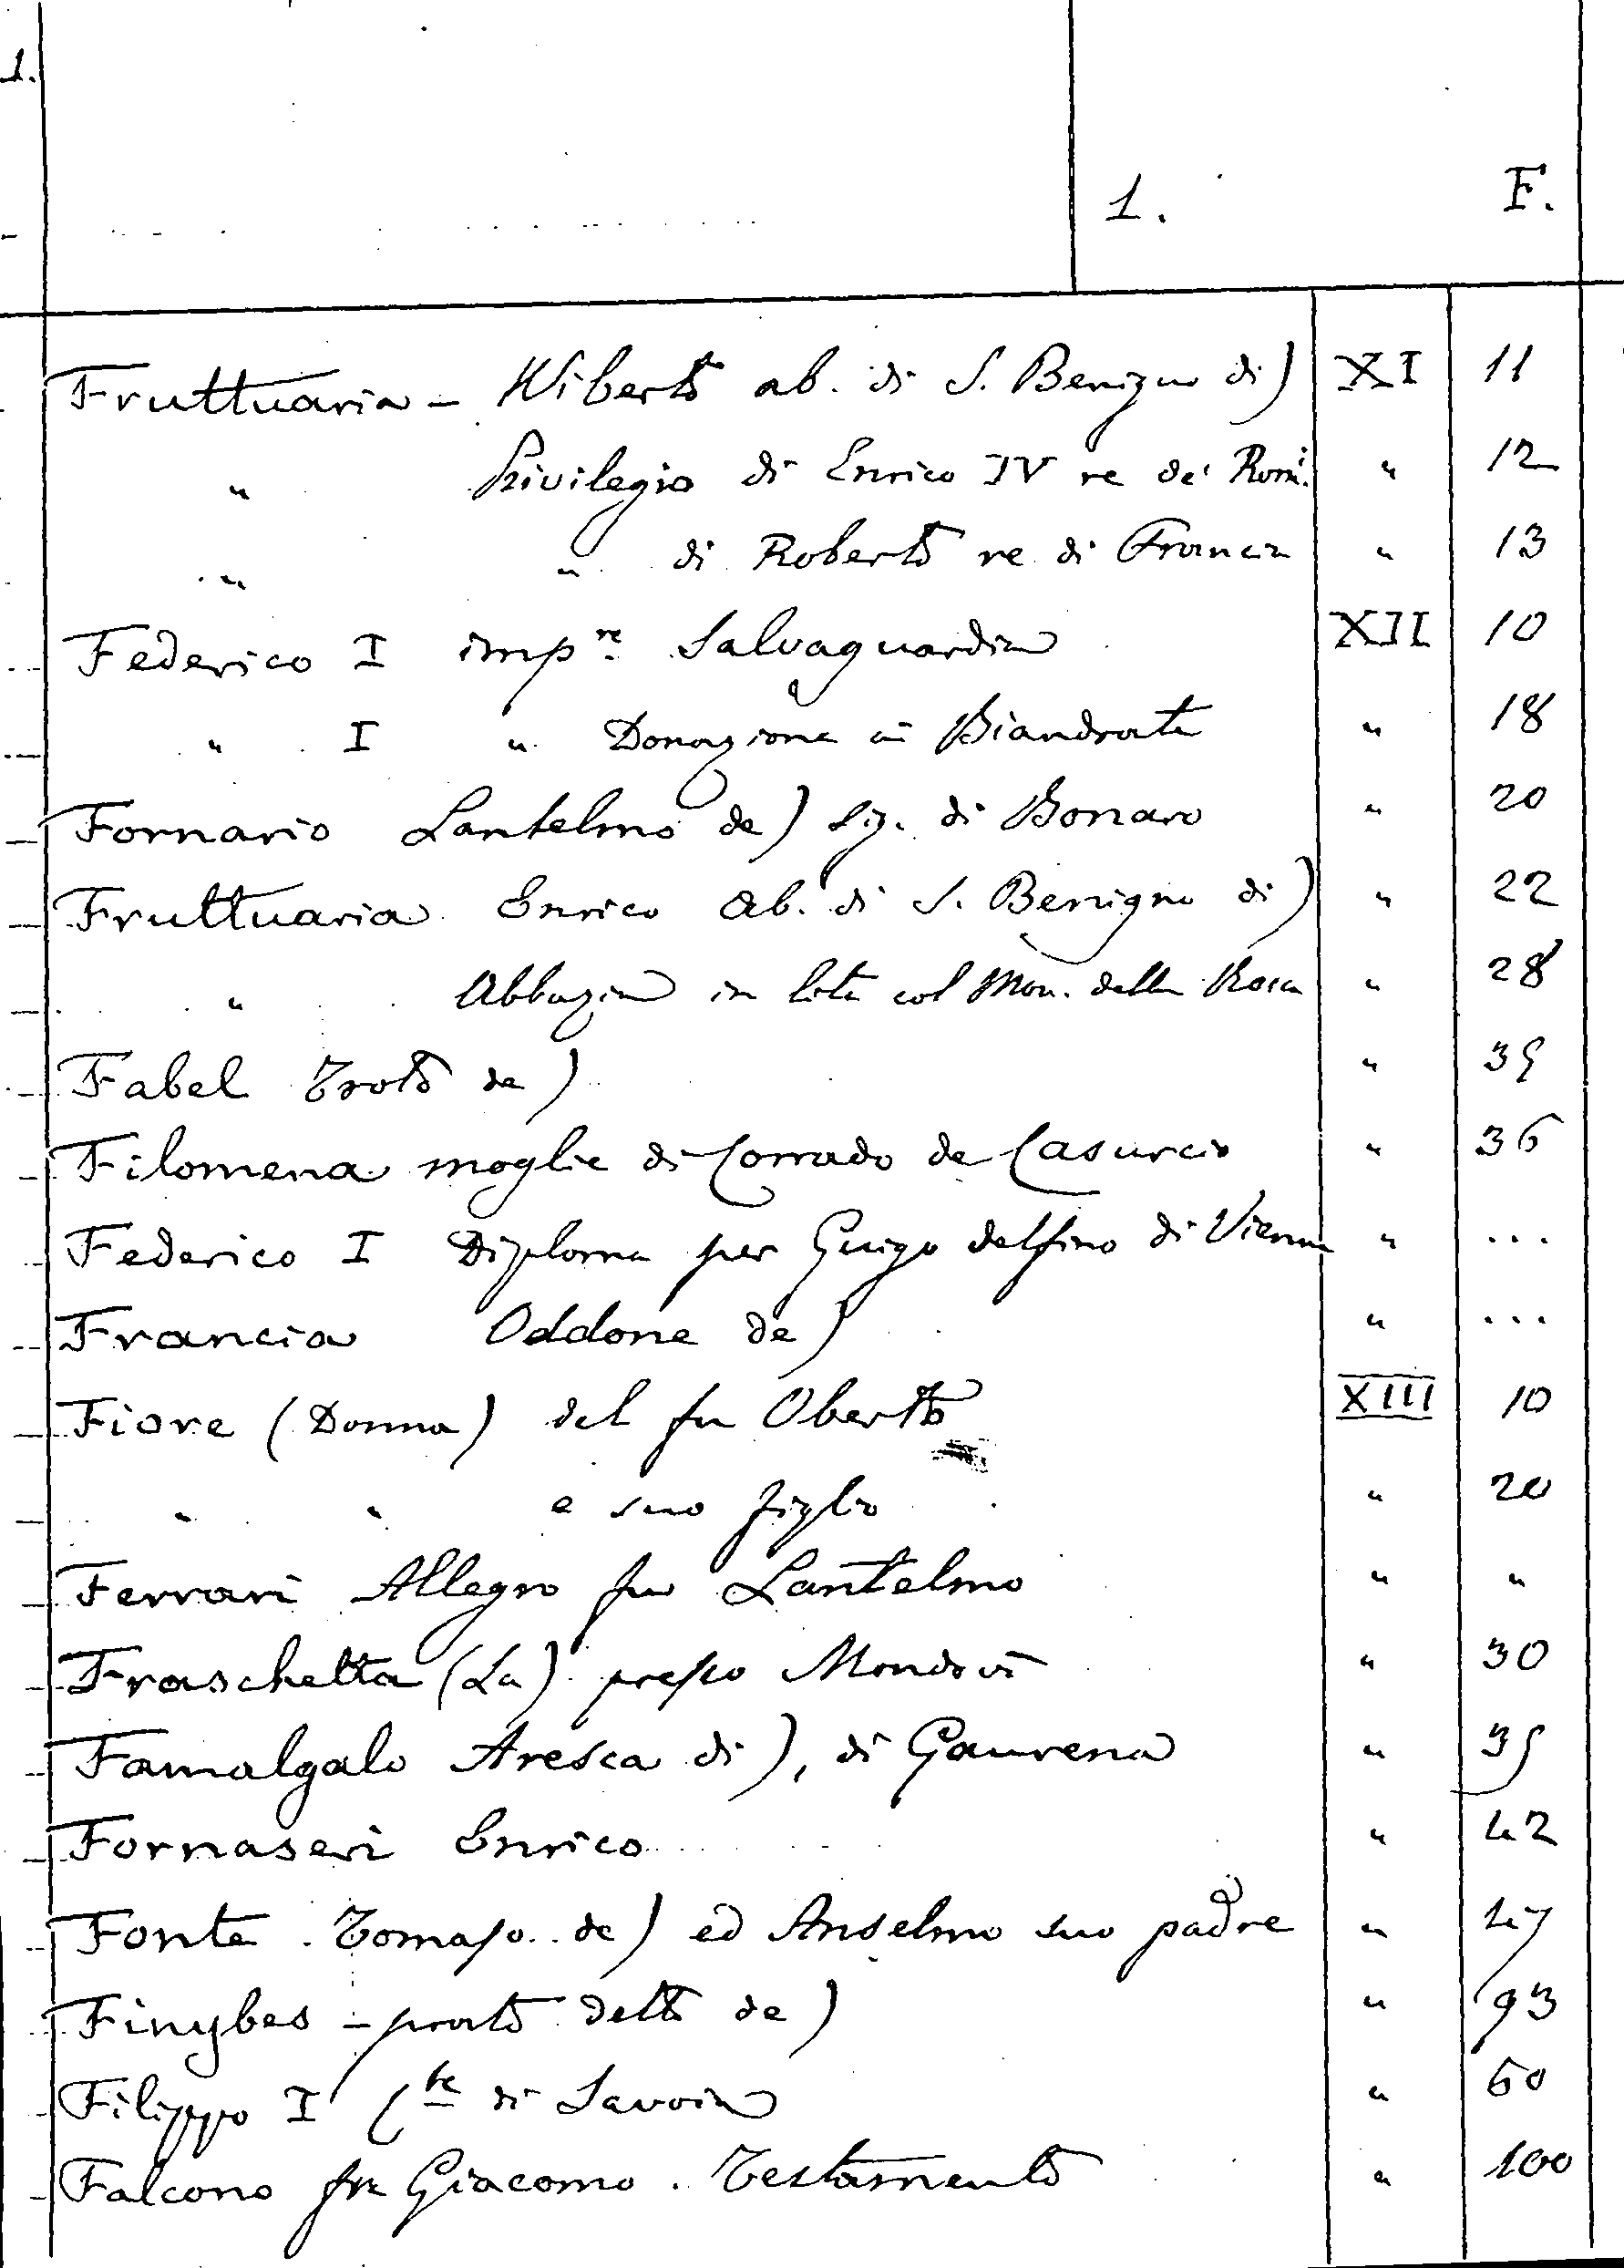 1.
1. F.
Fruttuaria - Wiberto ab. di S. Benigno di) XI 11
" Privilegio di Enrico IV re de' Romi. " 12
" " di Roberto re di Francia " 13
Federico I impre Salvaguardia XII 10
" I " Donazione ai Biandrate " 18
Fornario Lantelmo de) sig. di Bonaro " 20
Fruttuaria Enrico Ab. di S. Benigno di) " 22
" Abbazia in lite col Mon. della Rocca " 28
Fabel Troto de) " 35
Filomena moglie di Corrado de Casurcio " 36
Federico I Diploma per Guigo delfino di Vienna " ...
Francia Oddone de) " ...
Fiore (Donna) del fu Oberto XIII 10
" " e suo figlio " 20
Ferrari Allegro fu Lantelmo " "
Fraschetta (La) presso Mondovì " 30
Famalgalo Aresca di), di Gaurena " 35
Fornaseri Enrico " 42
Fonte Tomaso de) ed Anselmo suo padre " 47
Finybes - prato detto de) " 93
Filippo I Cte di Savoia " 60
Falcono fra Giacomo. Testamento " 100